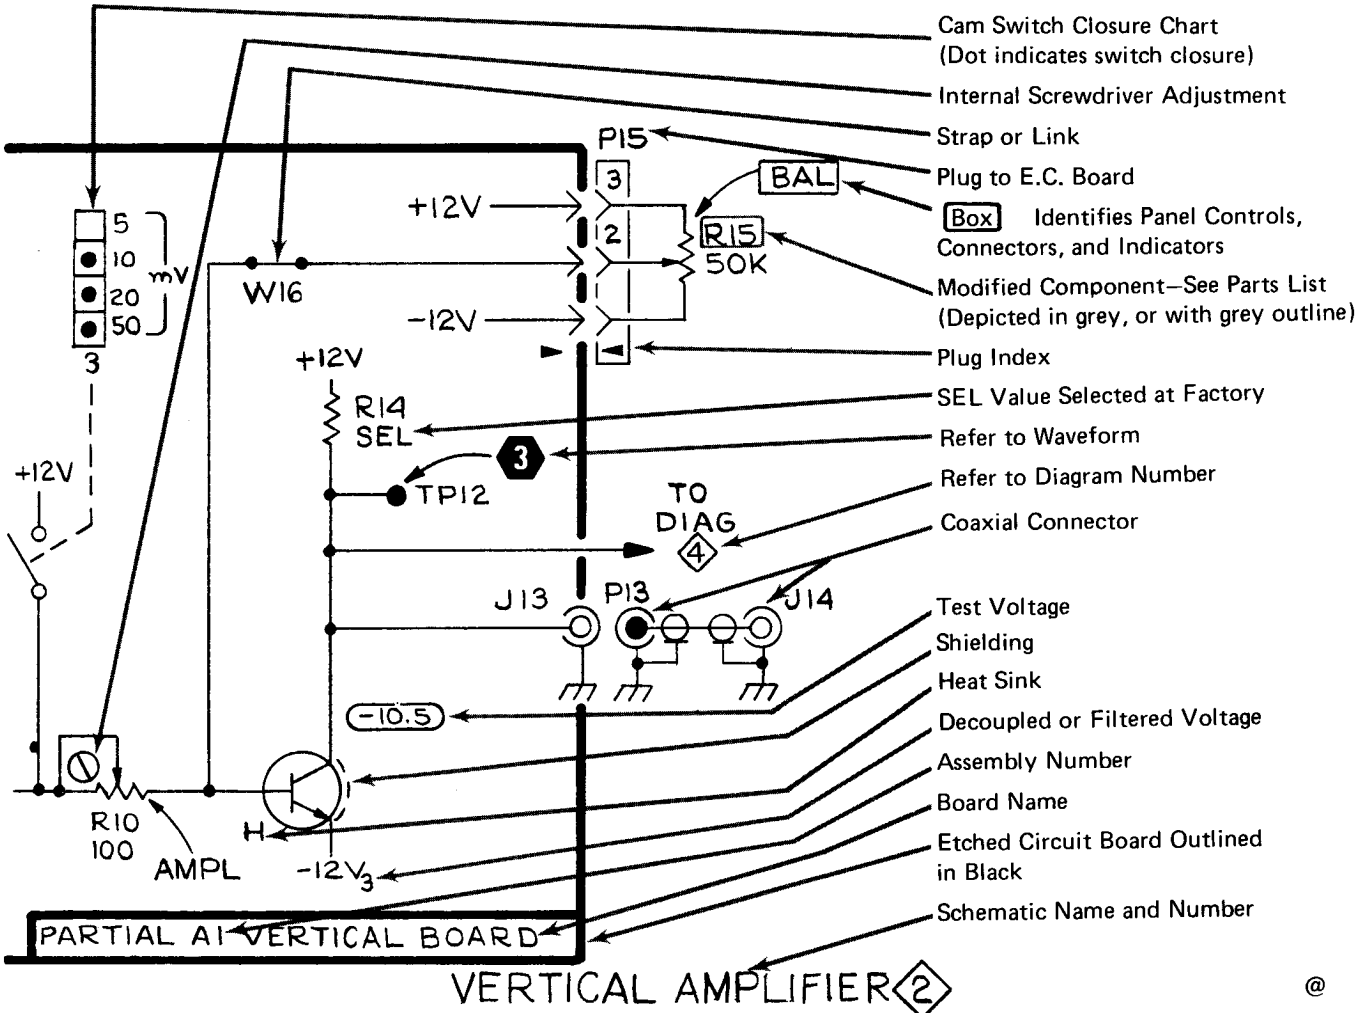 Cam Switch Closure Chart
(Dot indicates switch closure)
Internal Screwdriver Adjustment
Strap or Link
Plug to E.C. Board
Box Identifies Panel Controls,
Connectors, and Indicators
Modified Component—See Parts List
(Depicted in grey, or with grey outline)
Plug Index
SEL Value Selected at Factory
Refer to Waveform
Refer to Diagram Number
Coaxial Connector
Test Voltage
Shielding
Heat Sink
Decoupled or Filtered Voltage
Assembly Number
Board Name
Etched Circuit Board Outlined
in Black
Schematic Name and Number
P15
3
BAL
+12V
2
R15
50K
-12V
5
10
20
50
mV
3
W16
+12V
R14
SEL
3
TP12
+12V
TO
DIAG
4
J13
P13
J14
-10.5
R10
100
AMPL
H
-12V3
PARTIAL A1 VERTICAL BOARD
VERTICAL AMPLIFIER 2
@